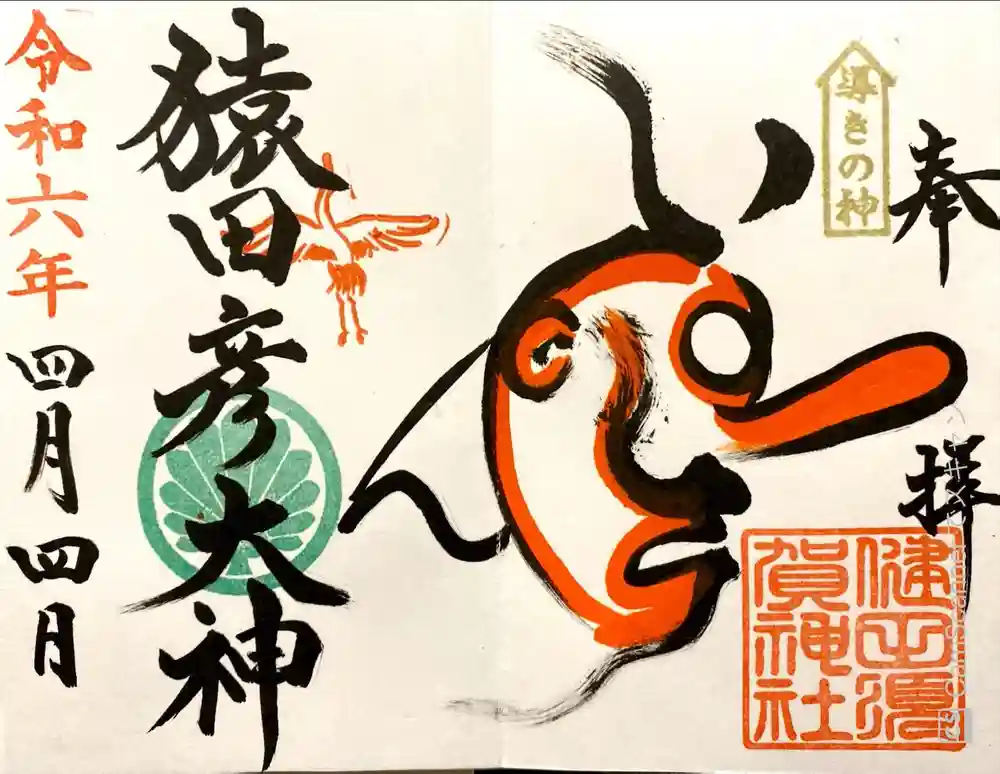 奉拝
導きの神
健田須
賀神社
猿田彦大神
令和六年四月四日